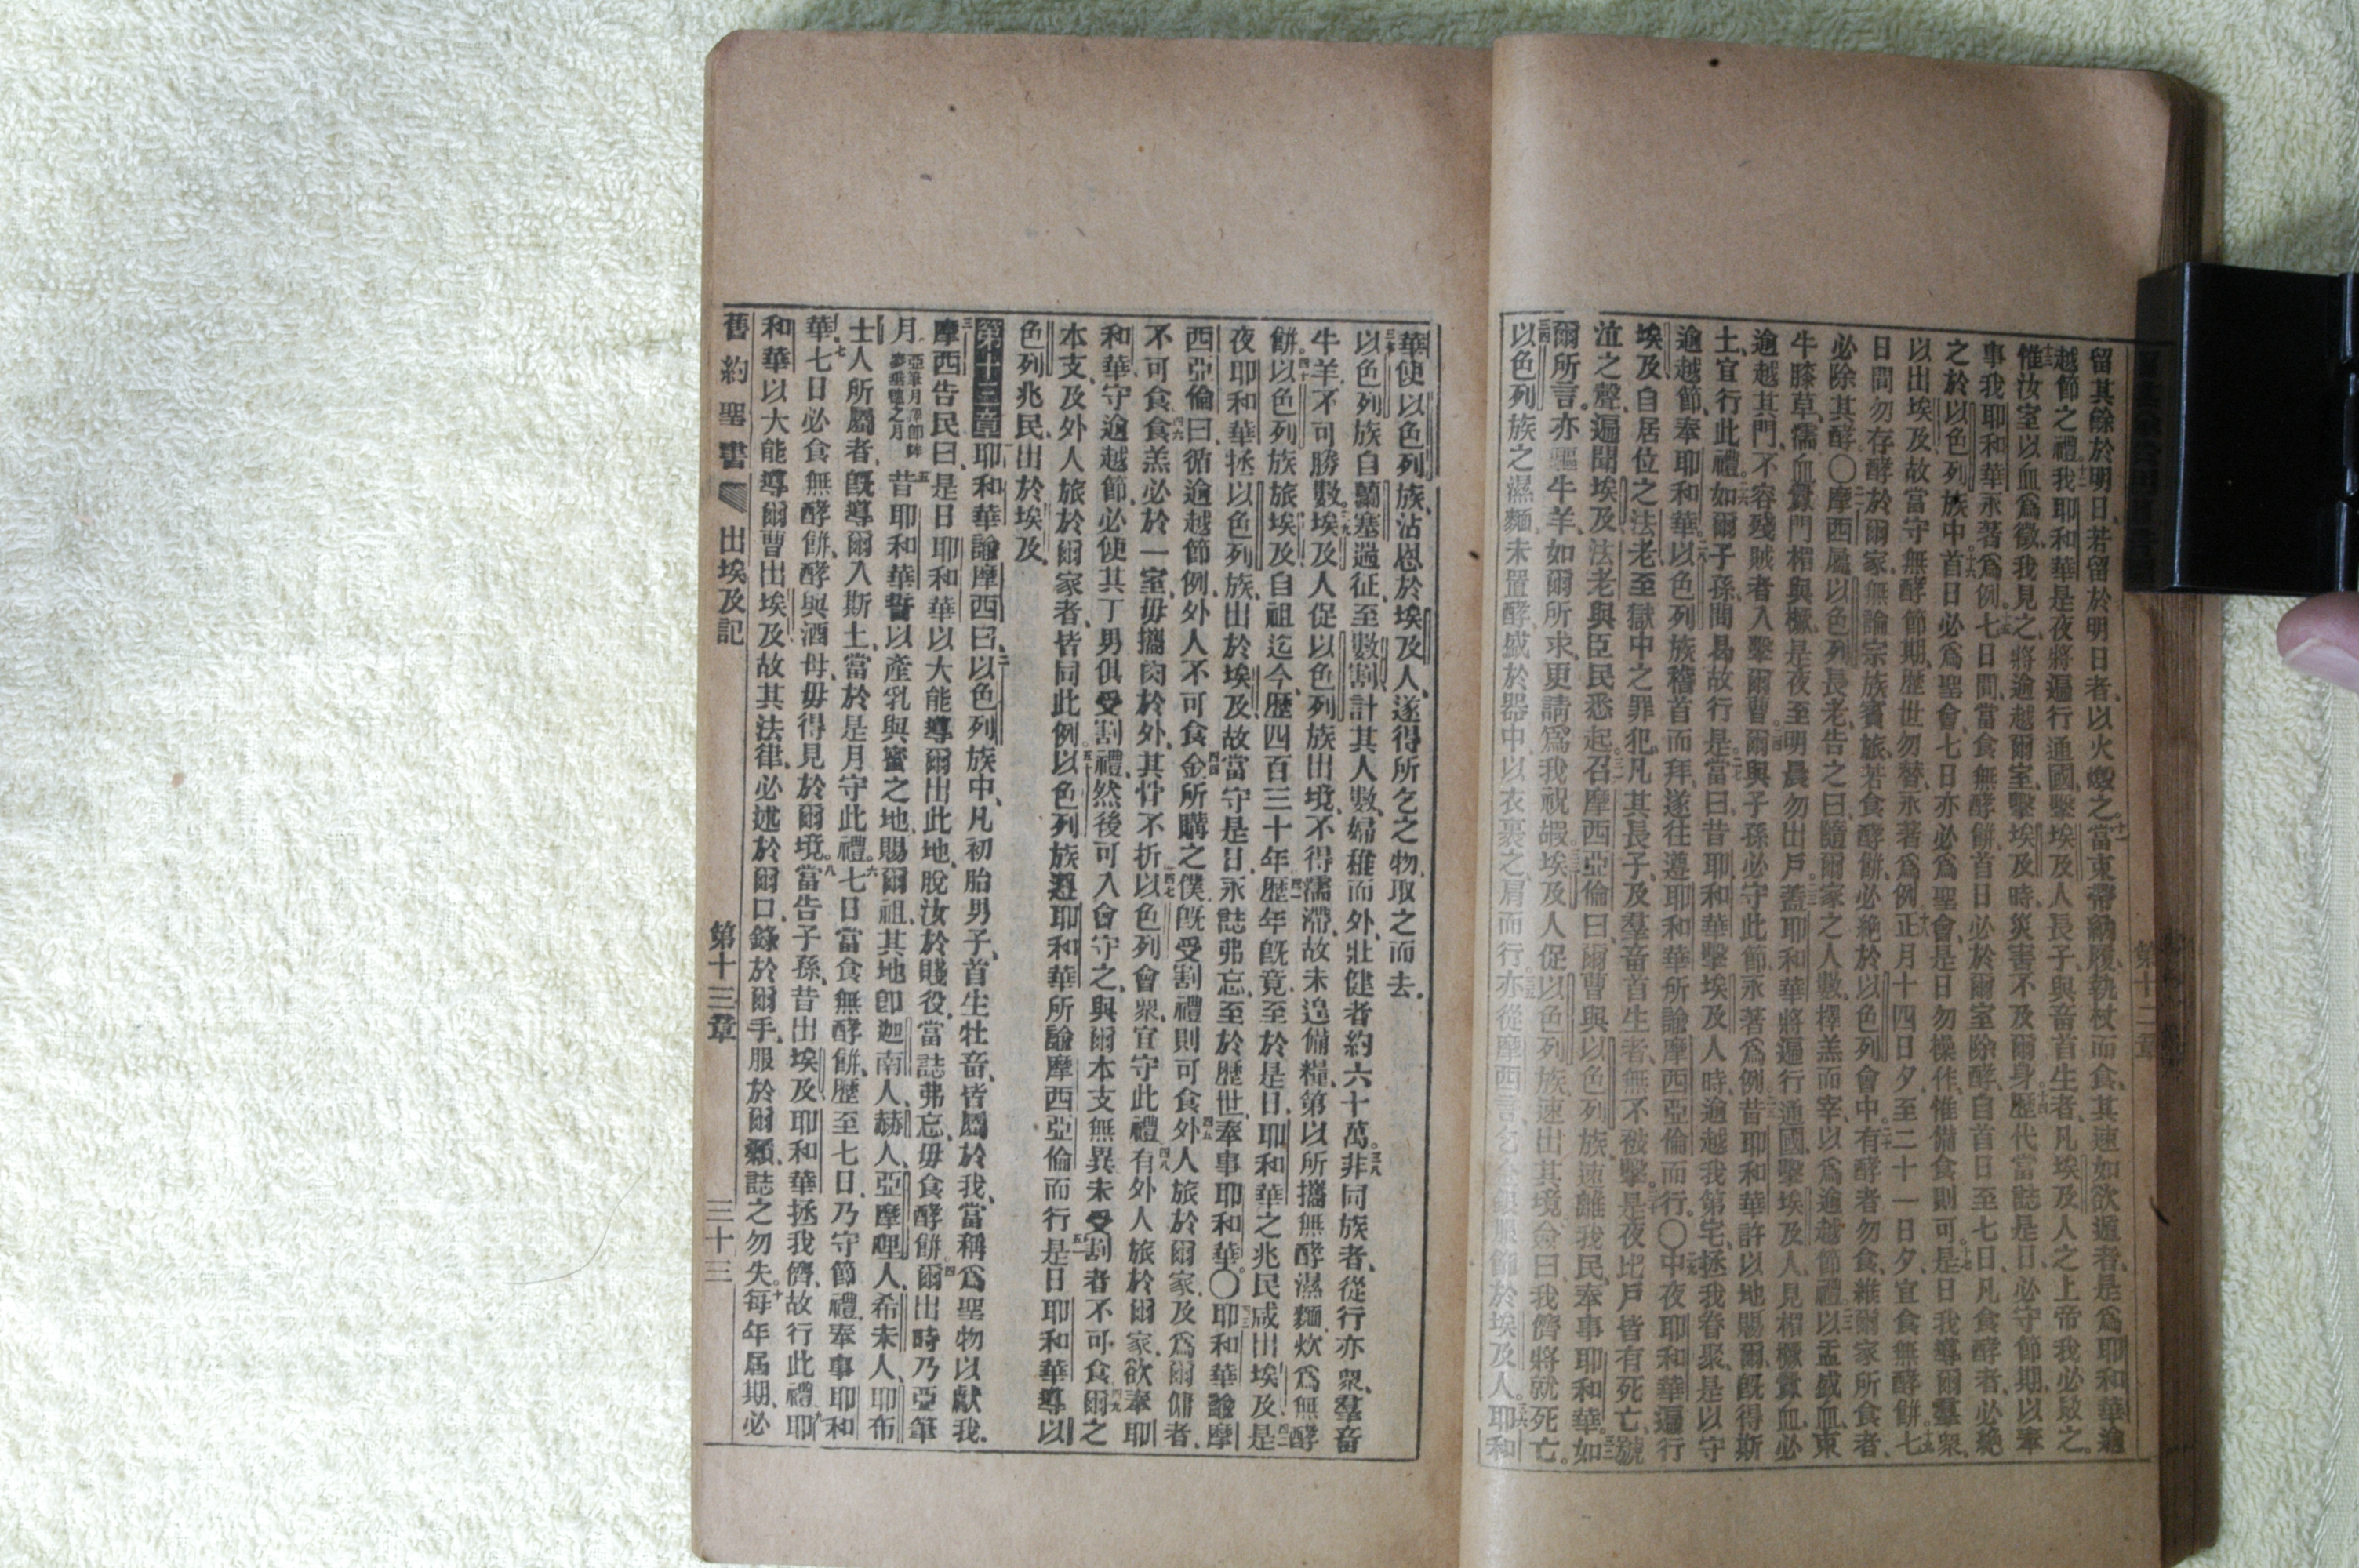 留其餘於明日、若留於明日者、以火燬之。當束帶納履、執杖而食、其速如欲遁者、是爲耶和華逾
越節之禮。我耶和華是夜將遍行通國、擊埃及人長子、與畜首生者、凡埃及人之上帝我必敗之。
惟汝室以血爲徵、我見之、將逾越爾室、擊埃及時、災害不及爾身。歷代當誌是日、必守節期、以奉
事我耶和華、永著爲例。七日間、當食無酵餅、首日必於爾室除酵、自首日至七日、凡食酵者、必絕
之於以色列族中。首日必爲聖會、七日亦必爲聖會、是日勿操作、惟備食則可。是日我導爾羣衆、
以出埃及、故當守無酵節期、歷世勿替、永著爲例。正月十四日夕、至二十一日夕、宜食無酵餅。七
日間勿存酵於爾家、無論宗族賓旅、若食酵餅、必絕於以色列會中。有酵者勿食、維爾家所食者、
必除其酵。〇摩西屬以色列長老、告之曰、隨爾家之人數、擇羔而宰、以爲逾越節禮。以盂盛血、束
牛膝草、濡血釁門楣與橛、是夜至明晨勿出戶。蓋耶和華將遍行通國、擊埃及人、見楣橛釁血、必
逾越其門、不容殘賊者入擊爾曹。爾與子孫必守此節、永著爲例。昔耶和華許以地賜爾、旣得斯
土、宜行此禮。如爾子孫間曷故行是。當曰、昔耶和華擊埃及人時、逾越我第宅、拯我眷聚、是以守
逾越節、奉耶和華。以色列族稽首而拜、遂往遵耶和華所諭摩西亞倫而行。〇中夜耶和華遍行
埃及、自居位之法老、至獄中之罪犯、凡其長子、及羣畜首生者、無不被擊。是夜比戶皆有死亡、號
泣之聲、遍聞埃及、法老與臣民悉起。召摩西亞倫曰、爾曹與以色列族、速離我民、奉事耶和華。如
爾所言。亦驅牛羊、如爾所求、更請爲我祝嘏。埃及人促以色列族速出其境、僉曰、我儕將就死亡。
以色列族之濕麵、未置酵、盛於器中、以衣裹之、肩而行、亦從摩西言、乞金銀服飾於埃及人。耶和
華使以色列族、沾恩於埃及人、遂得所乞之物、取之而去。
以色列族自蘭塞過征、至數割、計其人數、婦稚而外、壯健者約六十萬。非同族者、從行亦衆、羣畜
牛羊不可勝數。埃及人促以色列族出境、不得濡滯、故未遑備糧、第以所攜無酵濕麵、炊爲無酵
餅。以色列族旅埃及、自祖迄今、歷四百三十年。歷年旣竟、至於是日、耶和華之兆民咸出埃及。是
夜耶和華拯以色列族、出於埃及、故當守是日、永誌弗忘、至於歷世、奉事耶和華。〇耶和華諭摩
西亞倫曰、循逾越節例、外人不可食。金所購之僕、旣受割禮、則可食。外人旅於爾家、及爲爾傭者、
不可食。食羔必於一室、毋攜肉於外、其骨不折。以色列會衆、宜守此禮。有外人旅於爾家、欲奉耶
和華、守逾越節、必使其丁男俱受割禮、然後可入會守之、與爾本支無異、未受割者不可食。爾之
本支、及外人旅於爾家者、皆同此例。以色列族遵耶和華所諭摩西亞倫而行。是日耶和華導以
色列兆民、出於埃及。
第十三章 耶和華諭摩西曰、以色列族中、凡初胎男子、首生牡畜、皆屬於我、當稱爲聖物以獻我。
摩西告民曰、是日耶和華以大能導爾出此地、脫汝於賤役、當誌弗忘、毋食酵餅。爾出時乃亞筆
月。昔耶和華誓以產乳與蜜之地、賜爾祖、其地卽迦南人、赫人、亞摩哩人、希未人、耶布
士人所屬者、旣導爾入斯土、當於是月守此禮。七日當食無酵餅、歷至七日、乃守節禮、奉事耶和
華。七日必食無酵餅、酵與酒母、毋得見於爾境。當告子孫、昔出埃及、耶和華拯我儕、故行此禮。耶
和華以大能導爾曹出埃及、故其法律、必述於爾口、錄於爾手、服於爾顙、誌之勿失。每年屆期、必
舊約聖書 出埃及記 第十三章 三十三
第十二章